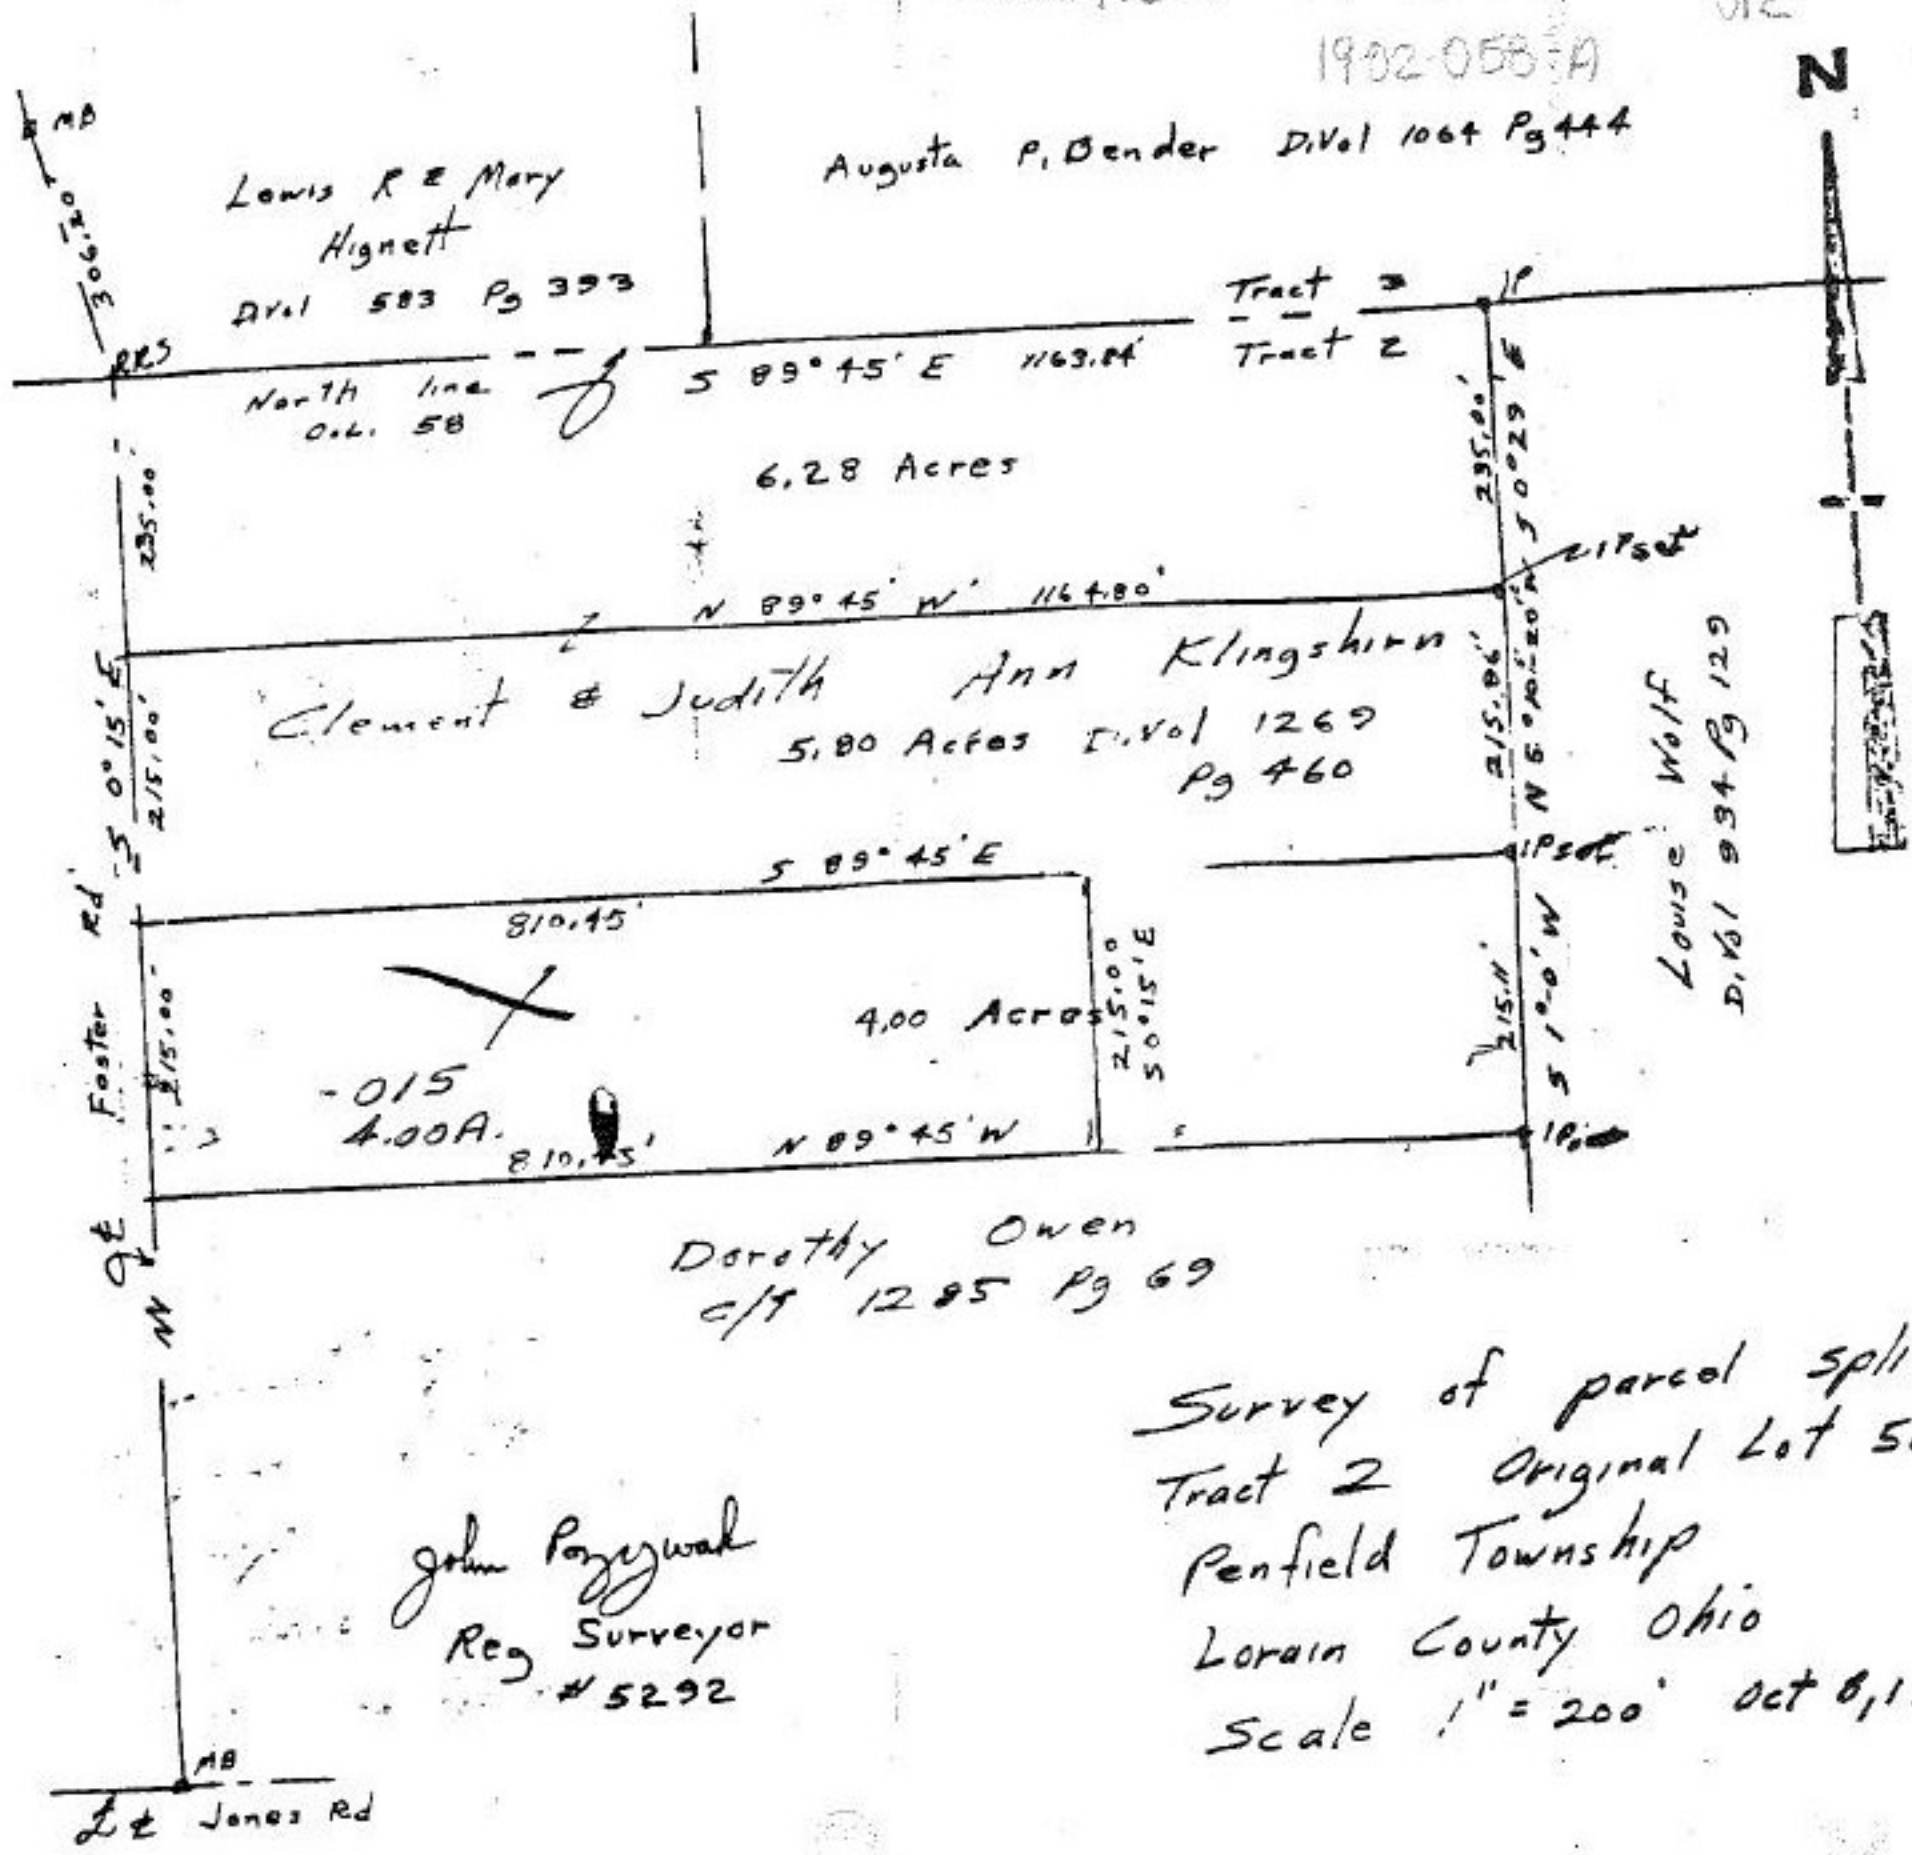 1982-058-A
N
MB
306.20'
Lewis R & Mary
Hignett
D.Vol 583 Pg 393
Augusta P. Bender D.Vol 1064 Pg 444
Tract 3
IP
RRS
S 89° 45' E 1163.84'
Tract 2
North line
O.L. 58
235.00'
235.00'
S 0° 29' E
6.28 Acres
IP set
N 89° 45' W 1164.80'
Clement & Judith Ann Klingshirn
5.80 Acres D.Vol 1269
Pg 460
S 0° 15' E
215.00'
215.86'
Louise Wolf
D.Vol 934 Pg 129
S 89° 45' E
IP set
810.45'
Foster Rd
215.00'
4.00 Acres
215.00
S 0° 15' E
215.11'
S 1°-0' W
-015
4.00A.
810.45'
N 89° 45' W
N
Dorothy Owen
1285 Pg 69
Survey of parcel spli
Tract 2 Original Lot 5
Penfield Township
Lorain County Ohio
Scale 1" = 200' Oct 8, 1
John Pozywak
Reg Surveyor
# 5292
MB
℄ Jones Rd